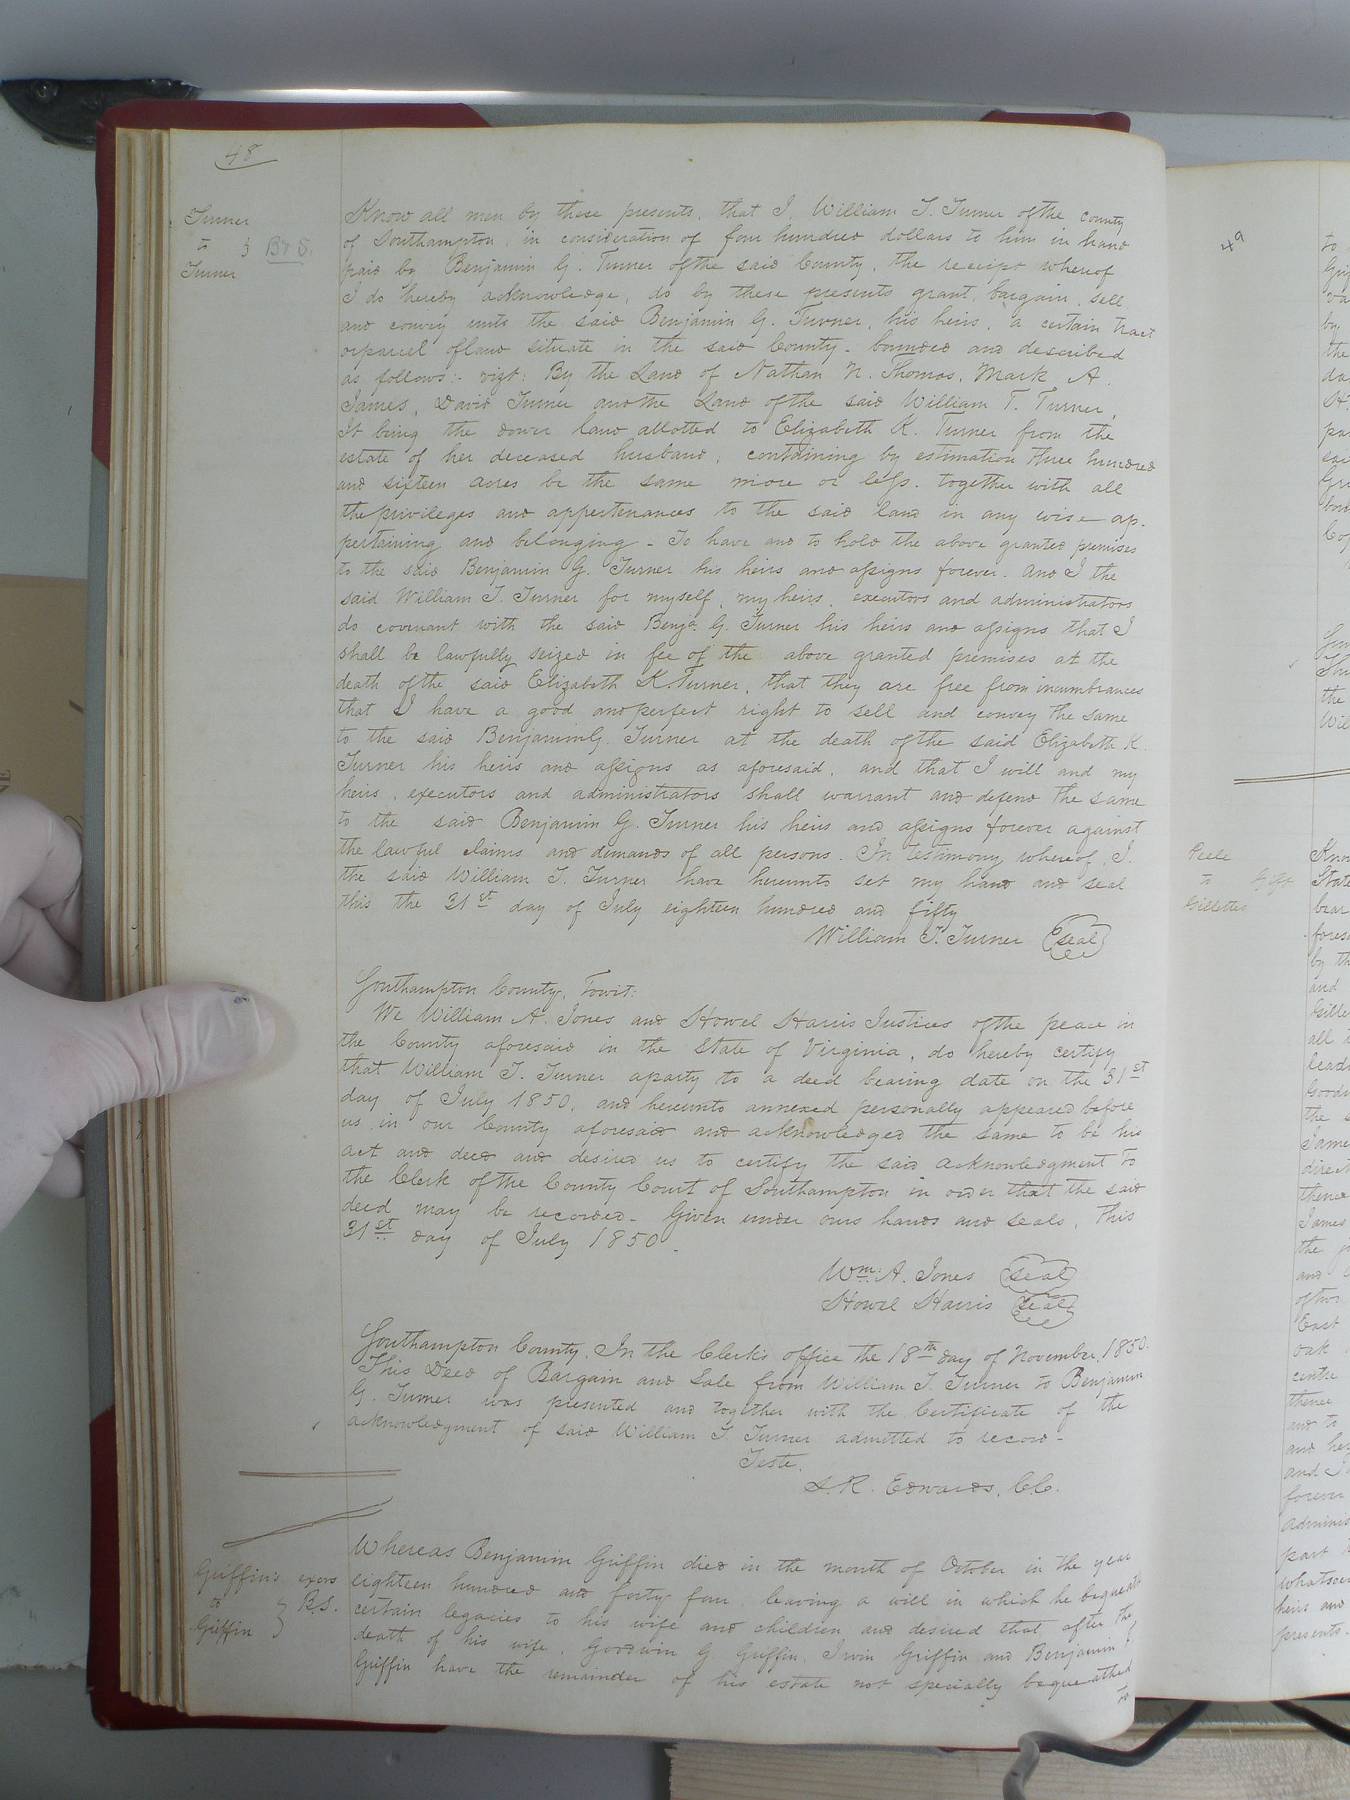 48
Turner
to } B & S.
Turner
Know all men by these presents, that I, William T. Turner of the county
of Southampton, in consideration of four hundred dollars to him in hand
paid by Benjamin G. Turner of the said County, the receipt whereof
I do hereby acknowledge, do by these presents grant, bargain, sell
and convey unto the said Benjamin G. Turner, his heirs, a certain tract
or parcel of land situate in the said County - bounded and described
as follows:- vizt: By the Land of Nathan N. Thomas, Mark A.
James, David Turner and the Land of the said William T. Turner,
It being the dower land allotted to Elizabeth K. Turner from the
estate of her deceased husband, containing by estimation three hundred
and sixteen acres be the same more or less. together with all
the privileges and appertenances to the said land in any wise ap-
pertaining and belonging - To have and to hold the above granted premises
to the said Benjamin G. Turner his heirs and assigns forever. And I the
said William T. Turner for myself, my heirs, executors and administrators
do covenant with the said Benja. G. Turner his heirs and assigns that I
shall be lawfully seized in fee of the above granted premises at the
death of the said Elizabeth K. Turner, that they are free from incumbrances
that I have a good and perfect right to sell and convey the same
to the said Benjamin G. Turner at the death of the said Elizabeth K.
Turner his heirs and assigns as aforesaid, and that I will and my
heirs, executors and administrators shall warrant and defend the same
to the said Benjamin G. Turner his heirs and assigns forever against
the lawful claims and demands of all persons. In testimony whereof, I.
the said William T. Turner have hereunto set my hand and seal
this the 31st day of July eighteen hundred and fifty
William T. Turner (seal)
Southampton County, Towit:
We William A. Jones and Howel Harris Justices of the peace in
the County aforesaid in the State of Virginia, do hereby certify
that William T. Turner a party to a deed bearing date on the 31st
day of July 1850, and hereunto annexed personally appeared before
us in our County aforesaid and acknowledged the same to be his
act and deed and desired us to certify the said acknowledgment to
the Clerk of the County Court of Southampton in order that the said
deed may be recorded - Given under ours hands and seals, this
31st day of July 1850.
Wm. A. Jones (seal)
Howel Harris (seal)
Southampton County. In the Clerk's office the 18th day of November, 1850.
This Deed of Bargain and Sale from William T. Turner to Benjamin
G. Turner was presented and together with the Certificate of the
acknowledgment of said William T. Turner admitted to record -
Teste.
L. R. Edwards, C.C.
Griffin's exors
to } B.S.
Griffin
Whereas Benjamin Griffin died in the month of October in the year
eighteen hundred and forty four leaving a will in which he bequeath
certain legacies to his wife and children and desired that after the
death of his wife, Goodwin G. Griffin, Irvin Griffin and Benjamin J
Griffin have the remainder of his estate not specially bequeathed
to
49
Peele
to Gift
Gillette